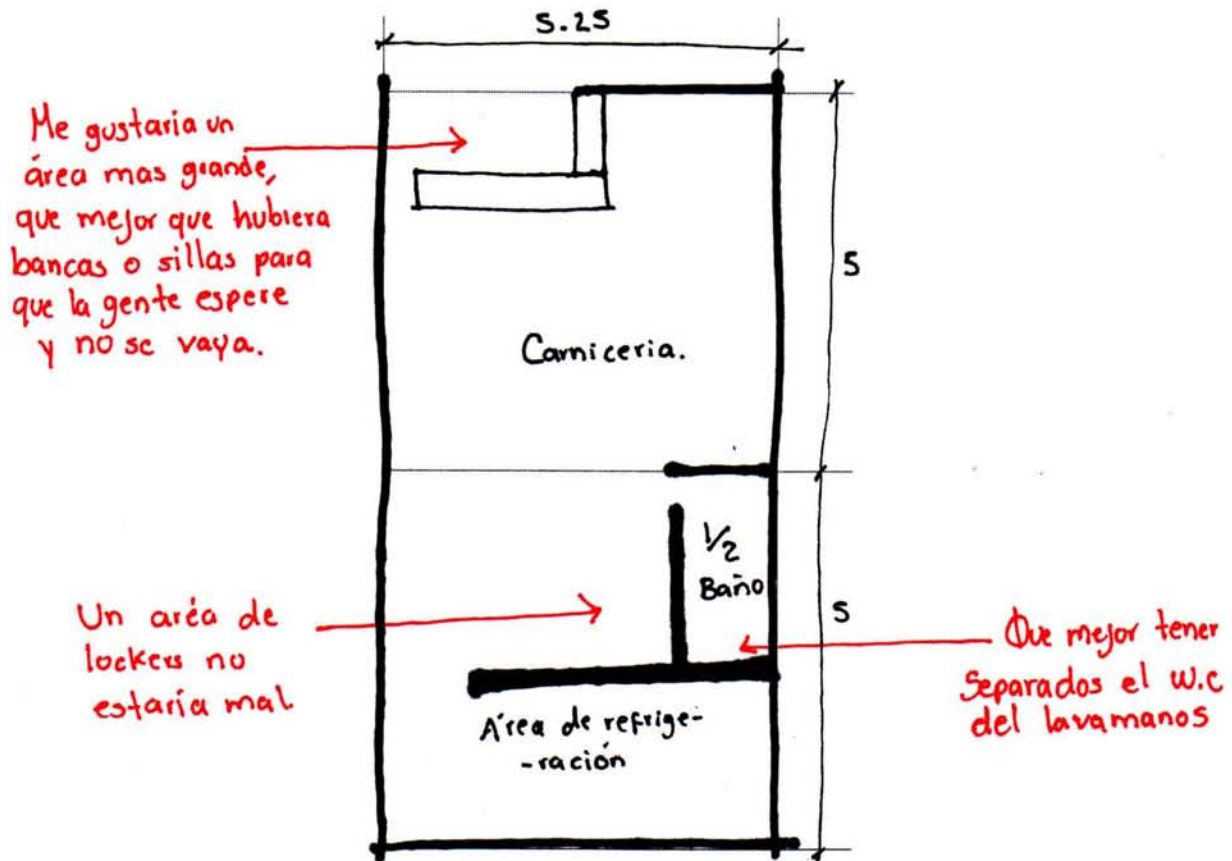 5.25
Me gustaria un
área mas grande,
que mejor que hubiera
bancas o sillas para
que la gente espere
y no se vaya.
5
Carniceria.
1/2
Baño
5
Un aréa de
lockers no
estaría mal
Que mejor tener
separados el w.c
del lavamanos
Área de refrige-
-ración